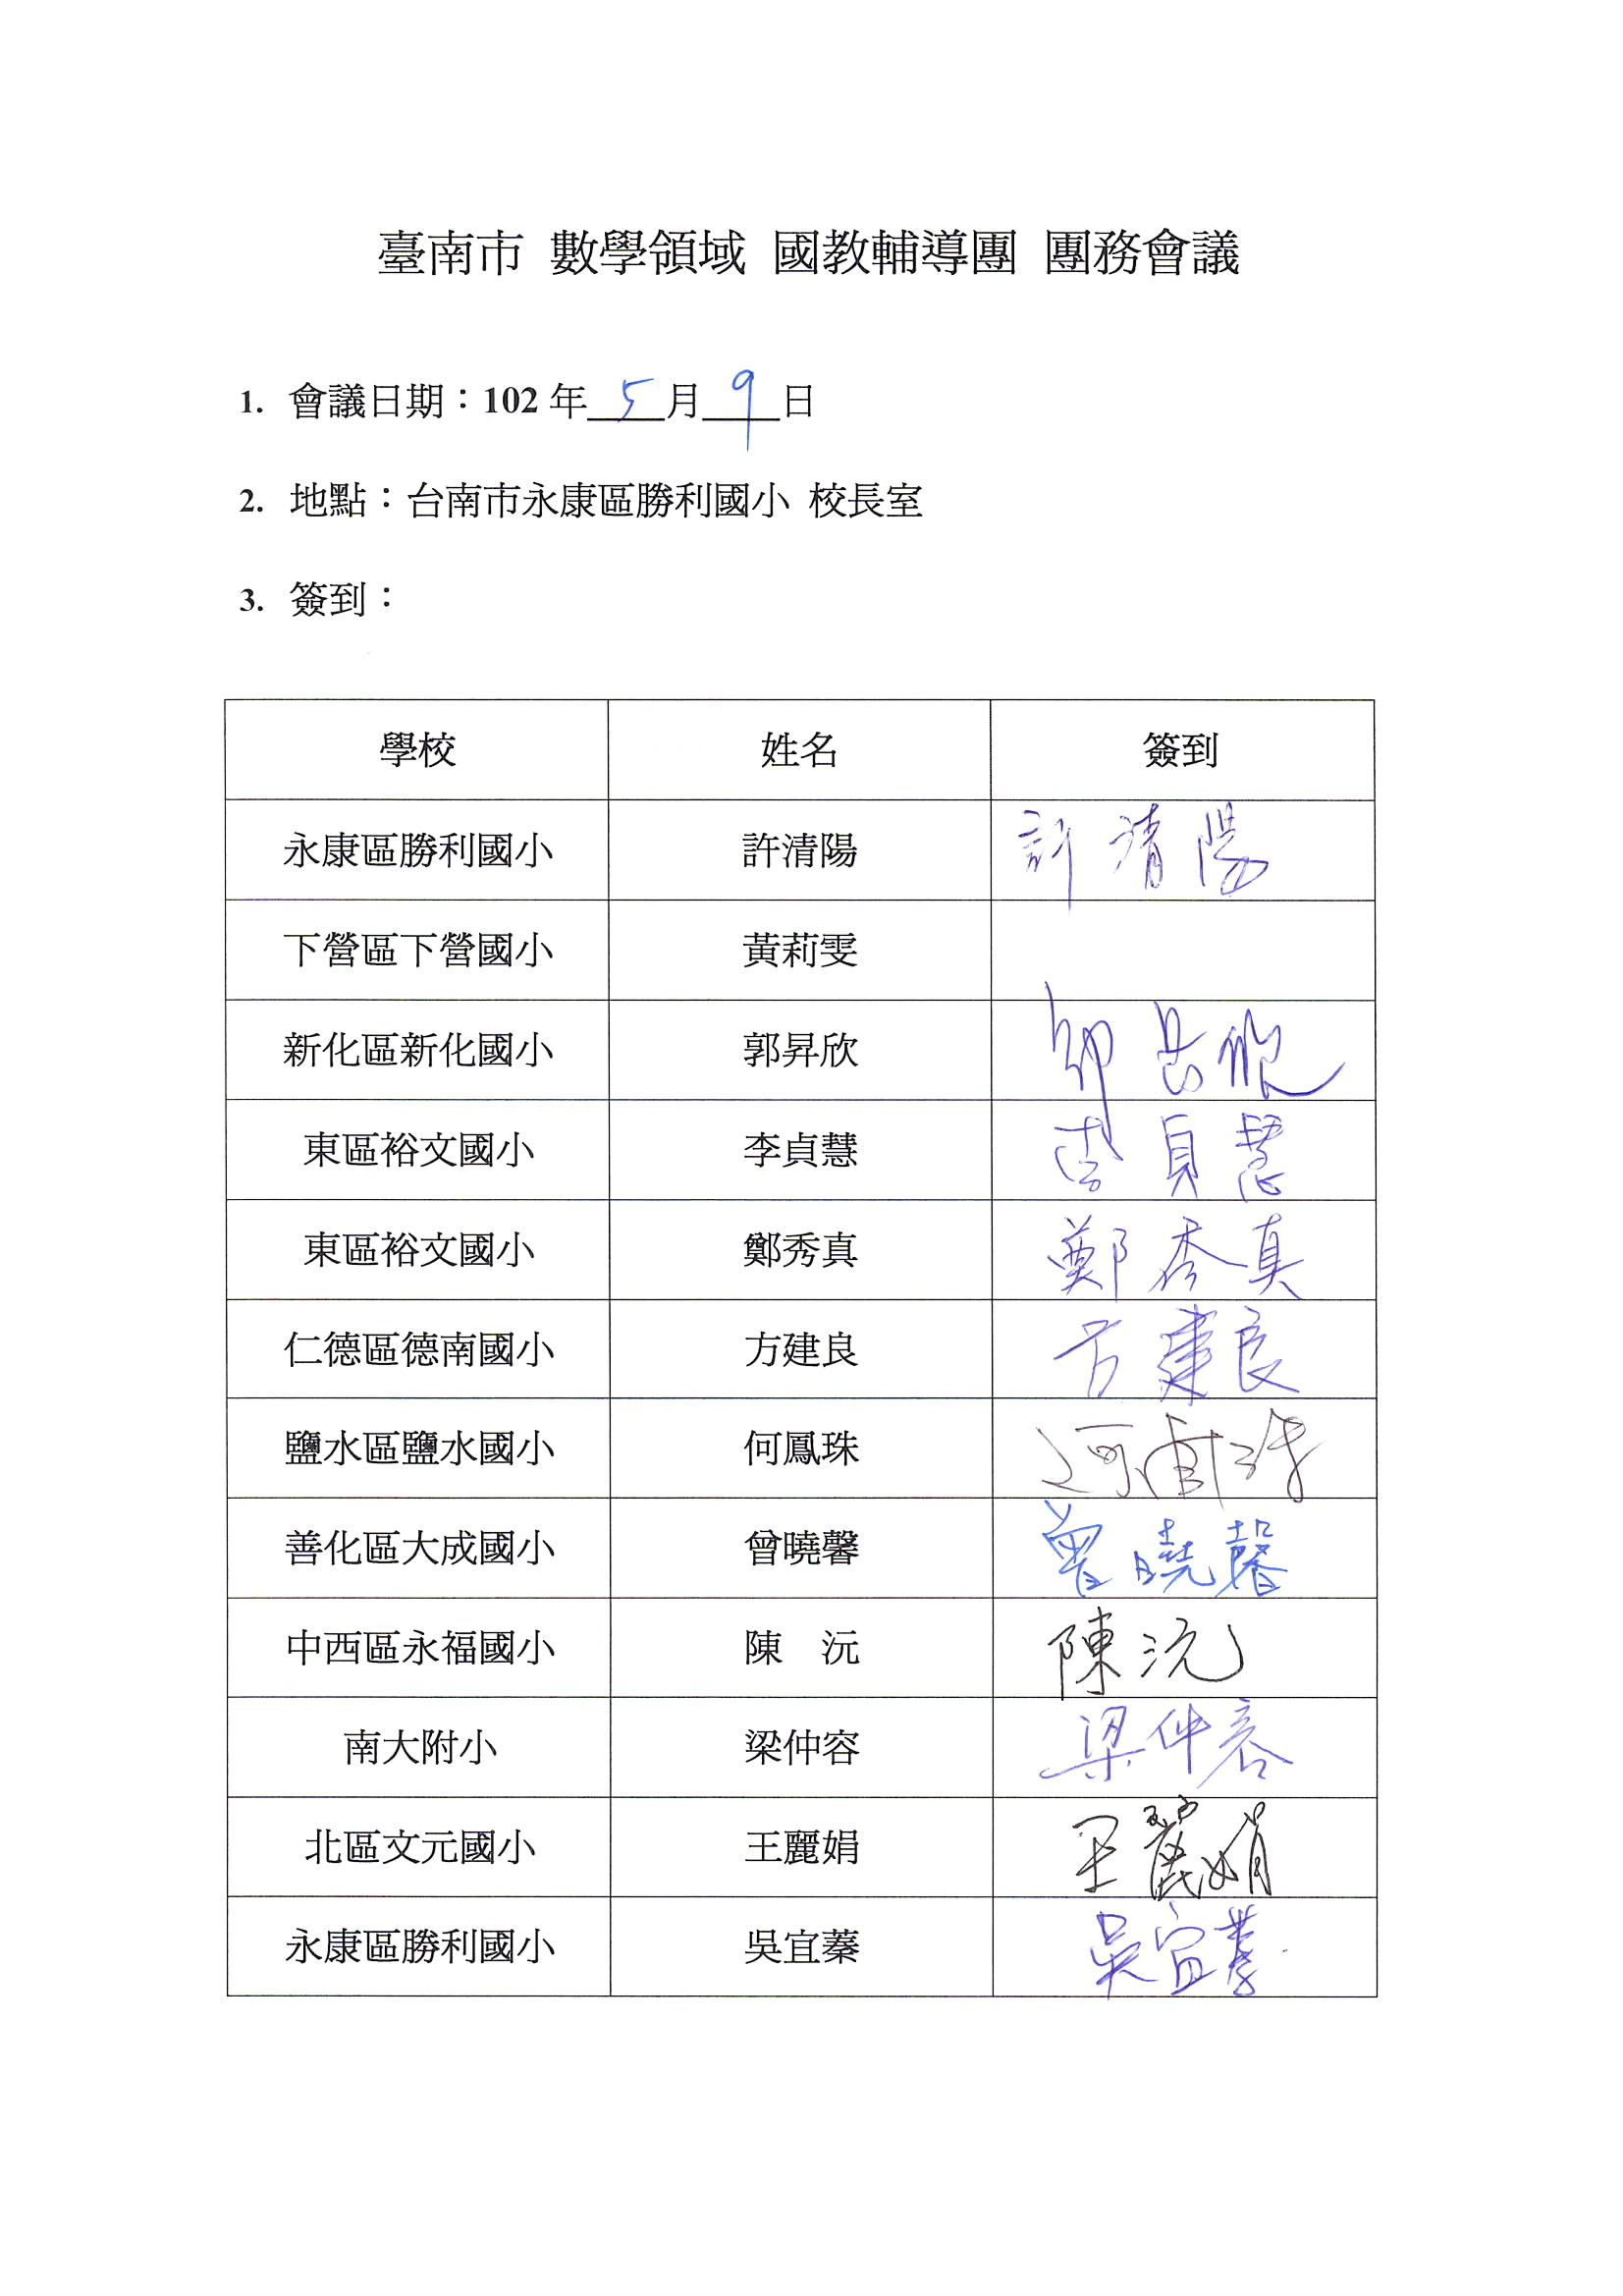 臺南市 數學領域 國教輔導團 團務會議
1. 會議日期：102 年 5 月 9 日
2. 地點：台南市永康區勝利國小 校長室
3. 簽到：
學校 姓名 簽到
永康區勝利國小 許清陽 許清陽
下營區下營國小 黃莉雯
新化區新化國小 郭昇欣 郭昇欣
東區裕文國小 李貞慧 李貞慧
東區裕文國小 鄭秀真 鄭秀真
仁德區德南國小 方建良 方建良
鹽水區鹽水國小 何鳳珠 何鳳珠
善化區大成國小 曾曉馨 曾曉馨
中西區永福國小 陳 沅 陳沅
南大附小 梁仲容 梁仲容
北區文元國小 王麗娟 王麗娟
永康區勝利國小 吳宜蓁 吳宜蓁